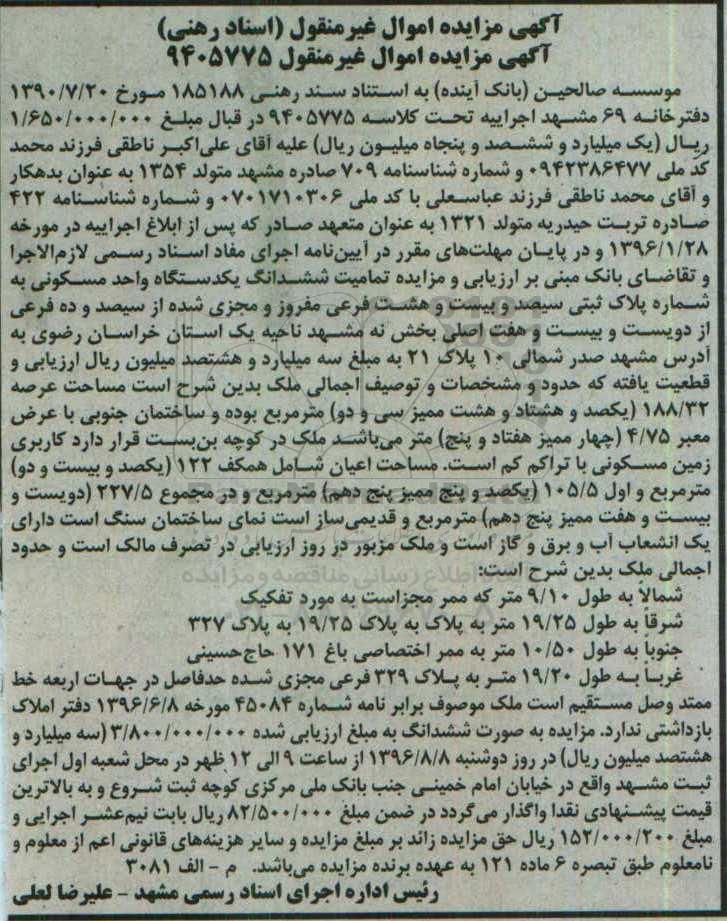 آگهی مزایده اموال غیرمنقول (اسناد رهنی)
آگهی مزایده اموال غیرمنقول ۹۴۰۵۷۷۵
موسسه صالحین (بانک آینده) به استناد سند رهنی ۱۸۵۱۸۸ مورخ ۱۳۹۰/۷/۲۰
دفترخانه ۶۹ مشهد اجراییه تحت کلاسه ۹۴۰۵۷۷۵ در قبال مبلغ ۱/۶۵۰/۰۰۰/۰۰۰
ریال (یک میلیارد و ششصد و پنجاه میلیون ریال) علیه آقای علی‌اکبر ناطقی فرزند محمد
کد ملی ۰۹۴۲۳۸۶۴۷۷ و شماره شناسنامه ۷۰۹ صادره مشهد متولد ۱۳۵۴ به عنوان بدهکار
و آقای محمد ناطقی فرزند عباسعلی با کد ملی ۰۷۰۱۷۱۰۳۰۶ و شماره شناسنامه ۴۲۲
صادره تربت حیدریه متولد ۱۳۲۱ به عنوان متعهد صادر که پس از ابلاغ اجراییه در مورخه
۱۳۹۶/۱/۲۸ و در پایان مهلت‌های مقرر در آیین‌نامه اجرای مفاد اسناد رسمی لازم‌الاجرا
و تقاضای بانک مبنی بر ارزیابی و مزایده تمامیت ششدانگ یکدستگاه واحد مسکونی به
شماره پلاک ثبتی سیصد و بیست و هشت فرعی مفروز و مجزی شده از سیصد و ده فرعی
از دویست و بیست و هفت اصلی بخش نه مشهد ناحیه یک استان خراسان رضوی به
آدرس مشهد صدر شمالی ۱۰ پلاک ۲۱ به مبلغ سه میلیارد و هشتصد میلیون ریال ارزیابی و
قطعیت یافته که حدود و مشخصات و توصیف اجمالی ملک بدین شرح است مساحت عرصه
۱۸۸/۳۲ (یکصد و هشتاد و هشت ممیز سی و دو) مترمربع بوده و ساختمان جنوبی با عرض
معبر ۴/۷۵ (چهار ممیز هفتاد و پنج) متر می‌باشد ملک در کوچه بن‌بست قرار دارد کاربری
زمین مسکونی با تراکم کم است. مساحت اعیان شامل همکف ۱۲۲ (یکصد و بیست و دو)
مترمربع و اول ۱۰۵/۵ (یکصد و پنج ممیز پنج دهم) مترمربع و در مجموع ۲۲۷/۵ (دویست و
بیست و هفت ممیز پنج دهم) مترمربع و قدیمی‌ساز است نمای ساختمان سنگ است دارای
یک انشعاب آب و برق و گاز است و ملک مزبور در روز ارزیابی در تصرف مالک است و حدود
اجمالی ملک بدین شرح است:
شمالاً به طول ۹/۱۰ متر که ممر مجزاست به مورد تفکیک
شرقاً به طول ۱۹/۲۵ متر به پلاک به پلاک ۱۹/۲۵ به پلاک ۳۲۷
جنوباً به طول ۱۰/۵۰ متر به ممر اختصاصی باغ ۱۷۱ حاج‌حسینی
غرباً به طول ۱۹/۲۰ متر به پلاک ۳۲۹ فرعی مجزی شده حدفاصل در جهات اربعه خط
ممتد وصل مستقیم است ملک موصوف برابر نامه شماره ۴۵۰۸۴ مورخه ۱۳۹۶/۶/۸ دفتر املاک
بازداشتی ندارد. مزایده به صورت ششدانگ به مبلغ ارزیابی شده ۳/۸۰۰/۰۰۰/۰۰۰ (سه میلیارد و
هشتصد میلیون ریال) در روز دوشنبه ۱۳۹۶/۸/۸ از ساعت ۹ الی ۱۲ ظهر در محل شعبه اول اجرای
ثبت مشهد واقع در خیابان امام خمینی جنب بانک ملی مرکزی کوچه ثبت شروع و به بالاترین
قیمت پیشنهادی نقدا واگذار می‌گردد در ضمن مبلغ ۸۲/۵۰۰/۰۰۰ ریال بابت نیم‌عشر اجرایی و
مبلغ ۱۵۲/۰۰۰/۲۰۰ ریال حق مزایده زائد بر مبلغ مزایده و سایر هزینه‌های قانونی اعم از معلوم و
نامعلوم طبق تبصره ۶ ماده ۱۲۱ به عهده برنده مزایده می‌باشد. م - الف ۳۰۸۱
رئیس اداره اجرای اسناد رسمی مشهد - علیرضا لعلی